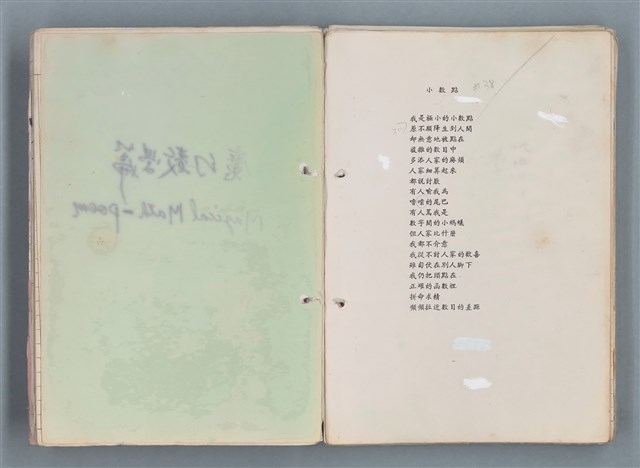 魔幻數學篇
Magical Math-poem
小數點
我是極小的小數點
原不願降生到人間
却無意地被點在
雜的數目中
多添人家的麻煩
人家細算起來
都說討厭
有人喻我為
的尾巴
有人罵我是
數字間的小螞蟻
但人家比什麼
我都不介意
我從不討人家的歡喜
雖匍伏在別人脚下
我仍把頭點在
正確的函數裡
拼命求精
頻頻拉近數目的差距